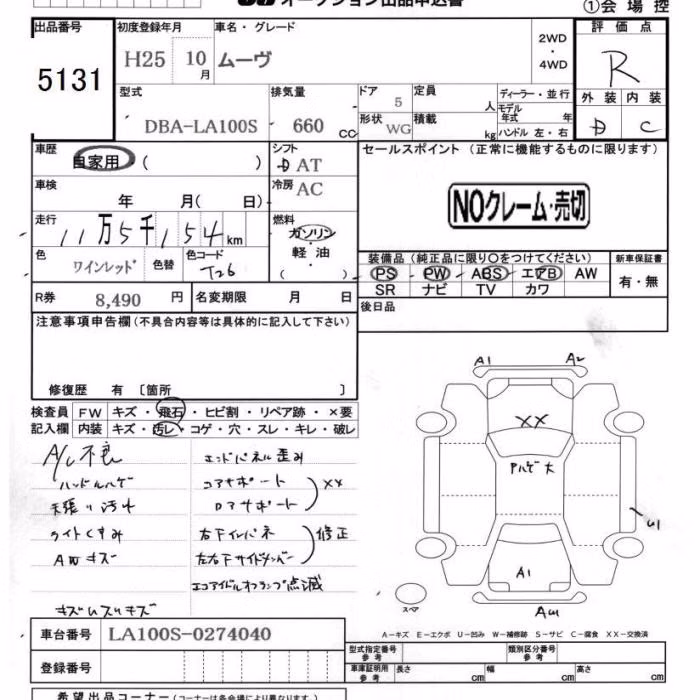 オークション出品申込書
①会場控
出品番号
5131
初度登録年月
H25 10月
車名・グレード
ムーヴ
2WD
・
4WD
評価点
R
外装 内装
D C
型式
DBA-LA100S
排気量
660 cc
ドア
5
形状 WG
定員 人
積載 kg
ディーラー・並行
モデル年式 年
ハンドル 左・右
車歴
自家用 ( )
シフト
D AT
車検
年 月( 日)
冷房 AC
走行
11万5千154km
燃料
ガソリン
・
軽 油
( )
色
ワインレッド
色替
色コード
T26
R券 8,490 円
名変期限 月 日
セールスポイント (正常に機能するものに限ります)
NOクレーム・売切
装備品 (純正品に限り○をつけてください)
PS PW ABS エアB AW
SR ナビ TV カワ
新車保証書
有・無
後日品
注意事項申告欄(不具合内容等は具体的に記入して下さい)
修復歴 有 〔箇所 〕
検査員 FW キズ・飛石・ヒビ割・リペア跡・×要
記入欄 内装 キズ・汚レ・コゲ・穴・スレ・キレ・破レ
A/C不良
ハンドルハゲ
天張り汚れ
ライトくすみ
AWキズ
キズUスリキズ
エンドパネル歪み
コアサポート
ロアサポート
XX
右下インパネ
左右下サイドメンバー
修正
エコアイドルオフランプ点滅
A1 A2
XX
Pハゲ大
U1
A1
スペア
AU1
A-キズ E-エクボ U-凹み W-補修跡 S-サビ C-腐食 XX-交換済
車台番号 LA100S-0274040
登録番号
型式指定番号
参考
類別区分番号
参考
車庫証明用
参考
長さ cm 幅 cm 高さ cm
希望出品コーナー(コーナーは各会場により異なります)